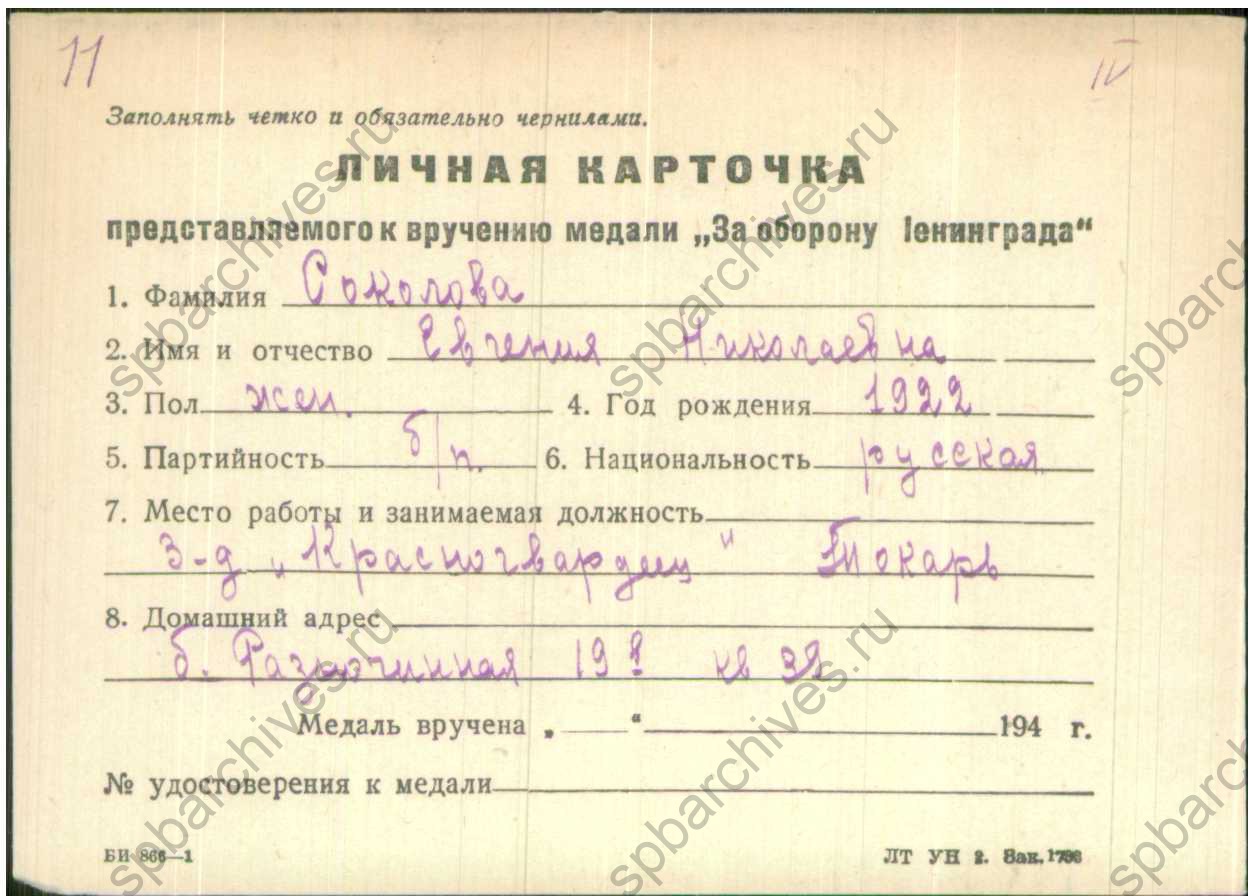 11 IV
Заполнять четко и обязательно чернилами.
ЛИЧНАЯ КАРТОЧКА
представляемого к вручению медали „За оборону Ленинграда“
1. Фамилия Соколова
2. Имя и отчество Евгения Николаевна
3. Пол жен. 4. Год рождения 1922
5. Партийность б/п. 6. Национальность русская
7. Место работы и занимаемая должность
З-д „Красногвардеец“ Токарь
8. Домашний адрес
б. Разночинная 19 кв 39
Медаль вручена „ “ 194 г.
№ удостоверения к медали
БИ 866—1 ЛТ УН 2. Зак. 1796
spbarchives.ru